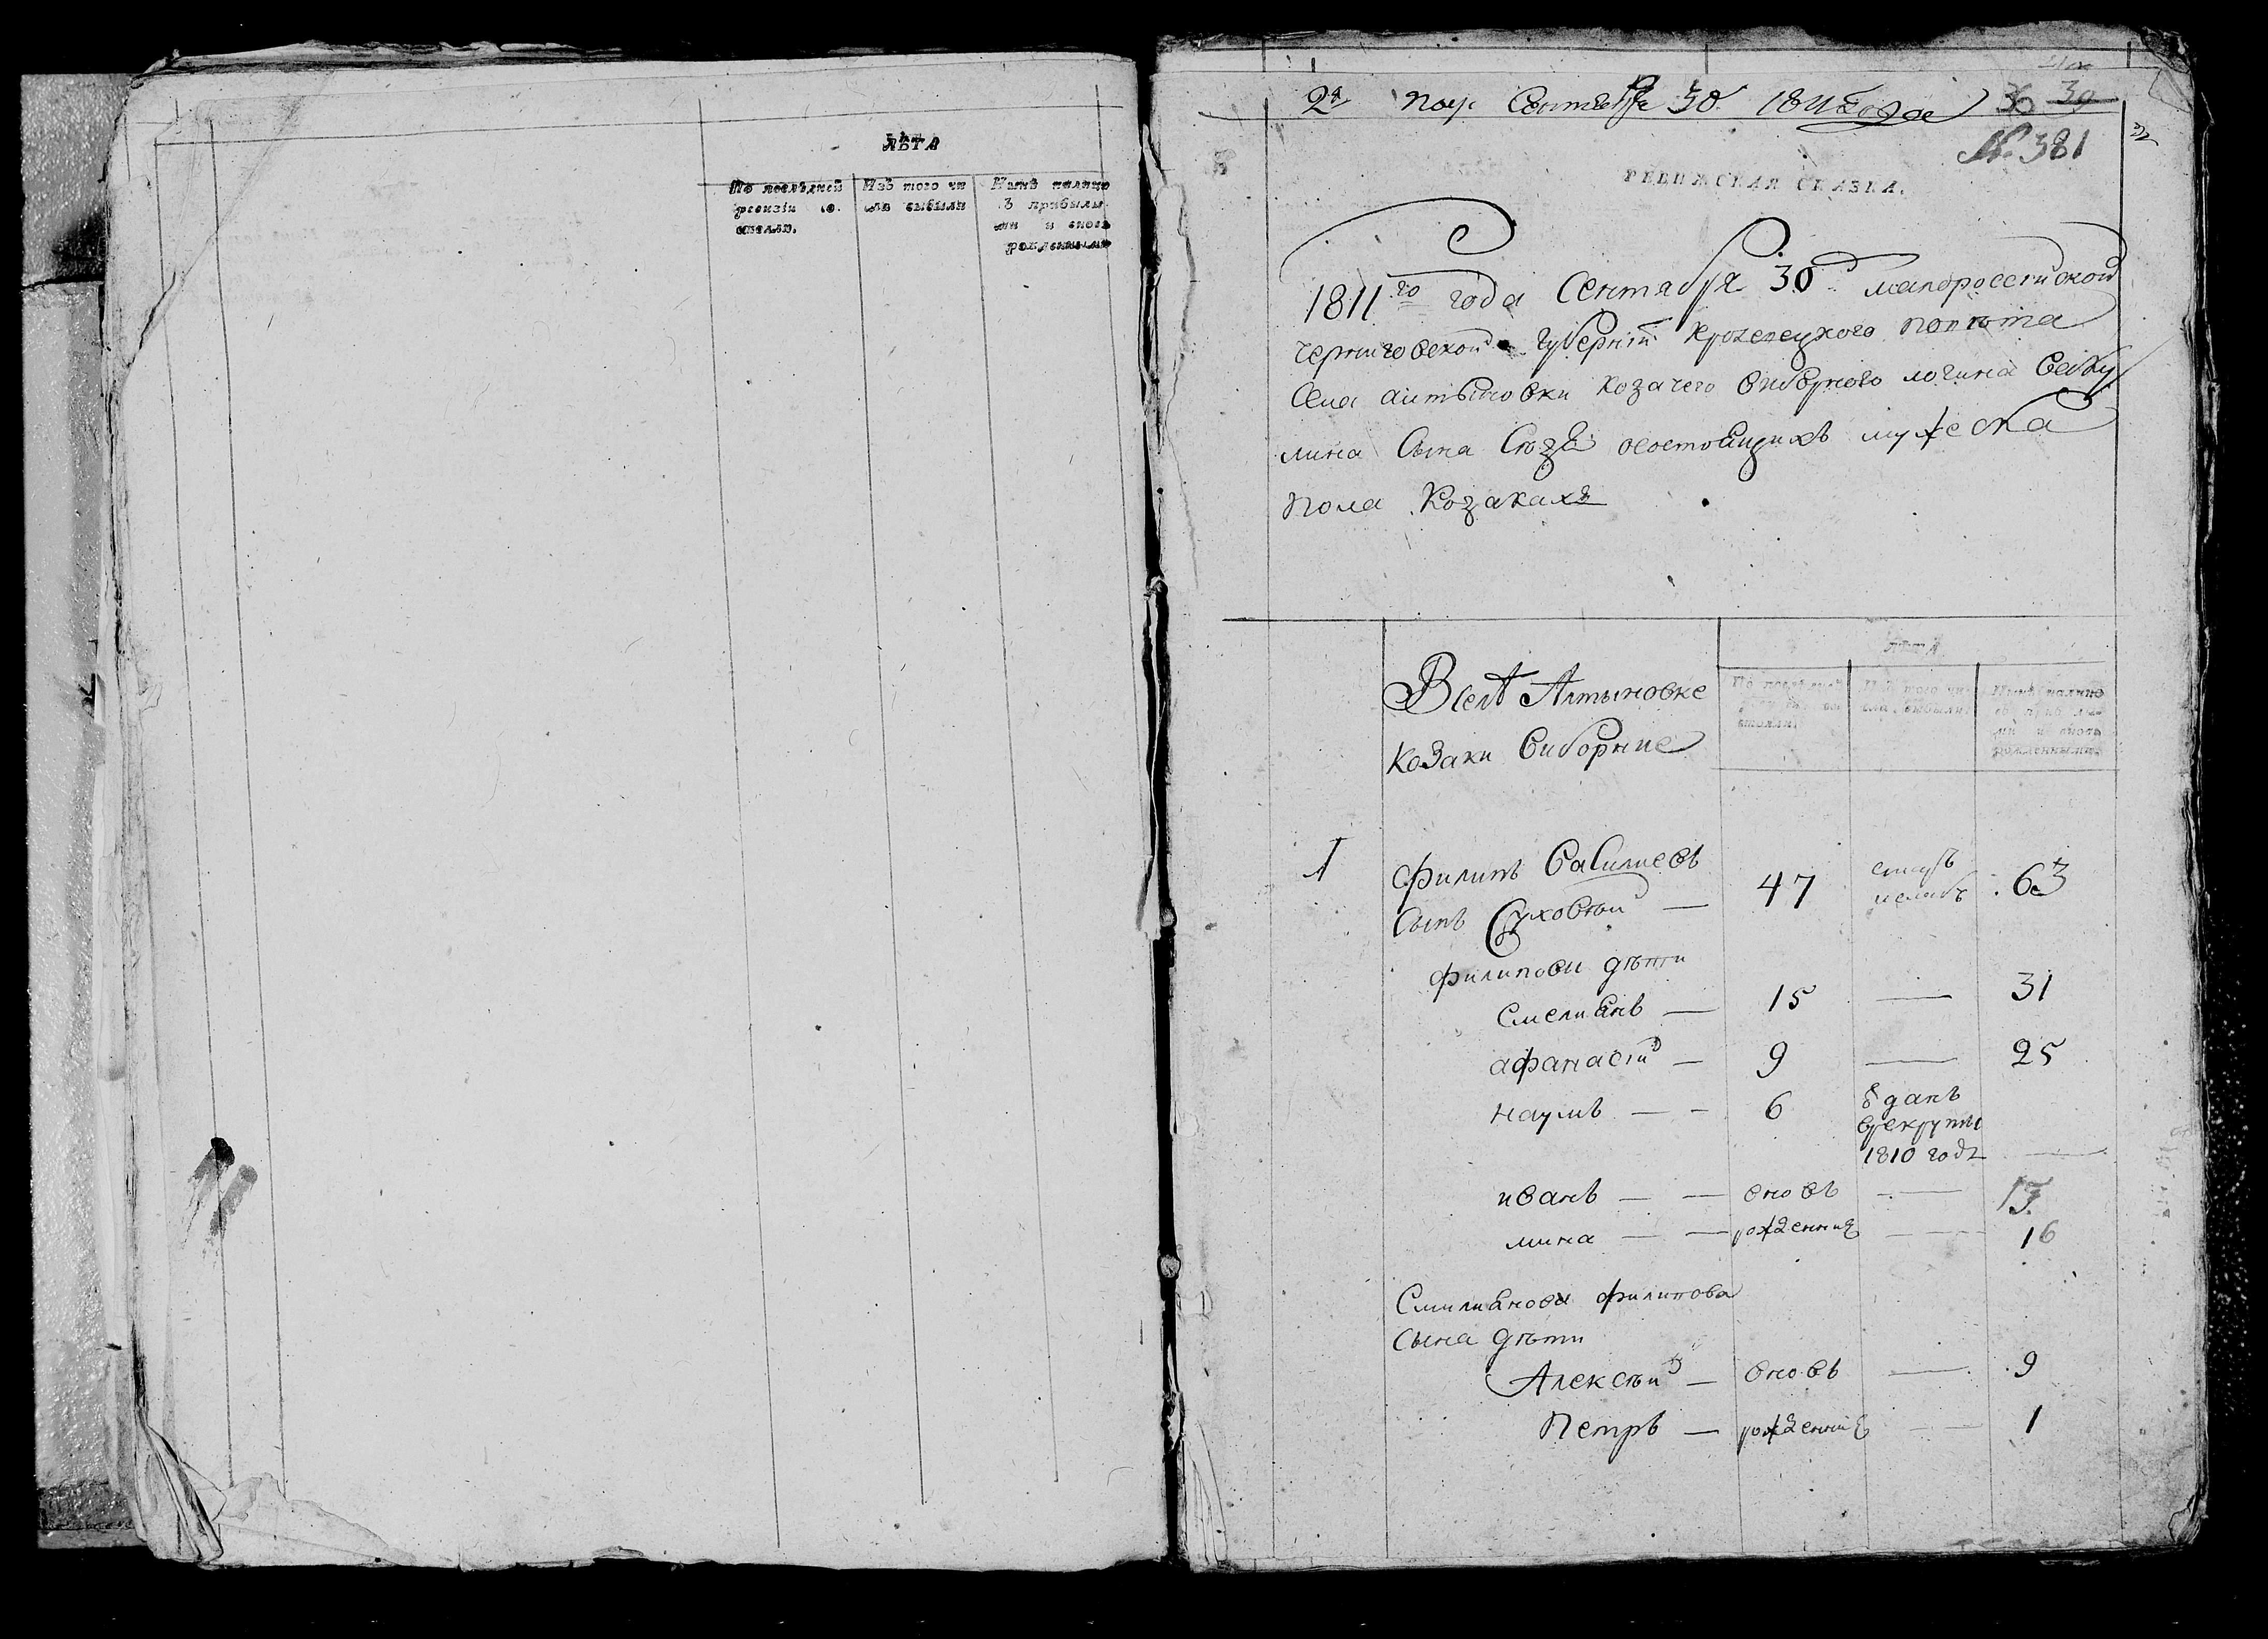 ЛѢТА
По послѣдней ревизіи состояло.
Изъ того числа выбыли
Нынѣ налицо съ прибылыми и вновь рожденными
2я пол. Сентября 30. 1811 года 30 39
№ 381
РЕВИЖСКАЯ СКАЗКА.
1811го года Сентября 30 д. малороссійской
черниговской губерніи кролевецкого повѣта
села алтыновки козачего виборного логина
сына состоящихъ мужеска
пола козакахъ
В селѣ Алтыновке
козаки виборние
ЛѢТА
По послѣдней ревизіи состояло.
Изъ того числа выбыли.
Нынѣ налицо съ прибылыми и вновь рожденными.
1 филипъ василиевъ
сынъ Суховѣй — 47 63
филипови дѣти
Емелиянъ — 15 — 31
афанасій — 9 — 25
наумъ — — 6 отданъ
в рекруты
1810 года —
иванъ — — вновь — 13
мина — — рожденние — 16
Емилиянова филипова
сына дѣти
Алексѣй — вновь — 9
Петръ — рожденние — 1